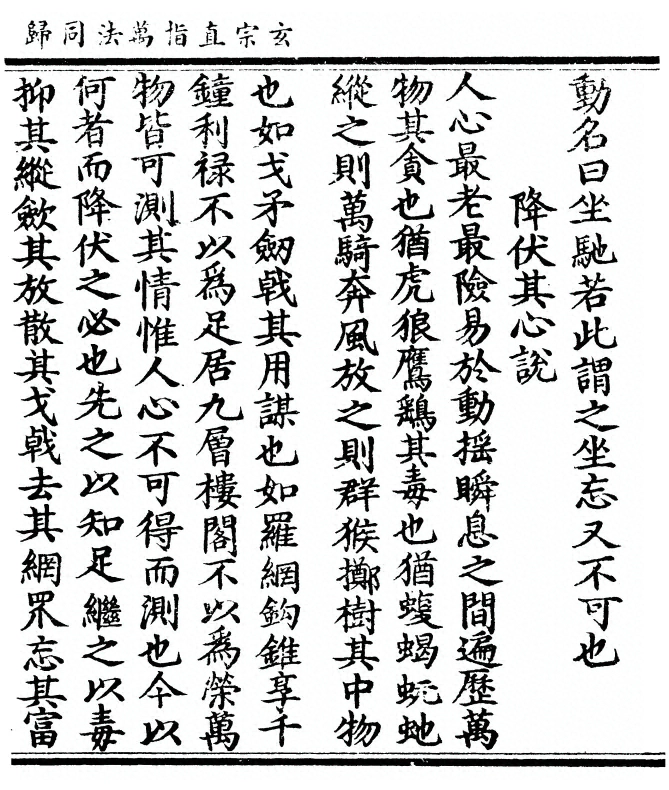 玄宗直指萬法同歸
動名曰坐馳若此謂之坐忘又不可也
降伏其心說
人心最老最險易於動搖瞬息之間遍歷萬
物其貪也猶虎狼鷹鷂其毒也猶蝮蝎蚖虵
縱之則萬騎奔風放之則群猴擲樹其中物
也如戈矛劒戟其用謀也如羅網鈎錐享千
鐘利禄不以爲足居九層樓閣不以爲榮萬
物皆可測其情惟人心不可得而測也今以
何者而降伏之必也先之以知足繼之以毒
抑其縱歛其放散其戈戟去其網罘忘其富